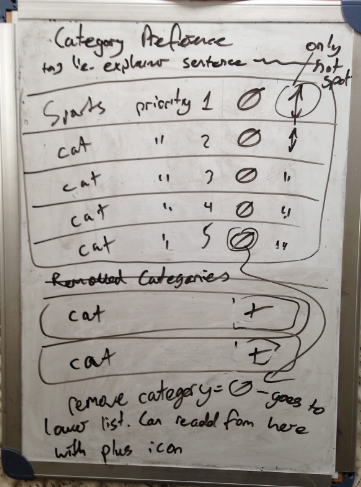 Category Preference
only
hot
spot
explainer sentence
Sports priority 1
cat " 2
cat " 3 "
cat " 4 "
cat " 5 "
Removed Categories
cat +
cat +
remove category = - goes to
lower list. Can readd from here
with plus icon